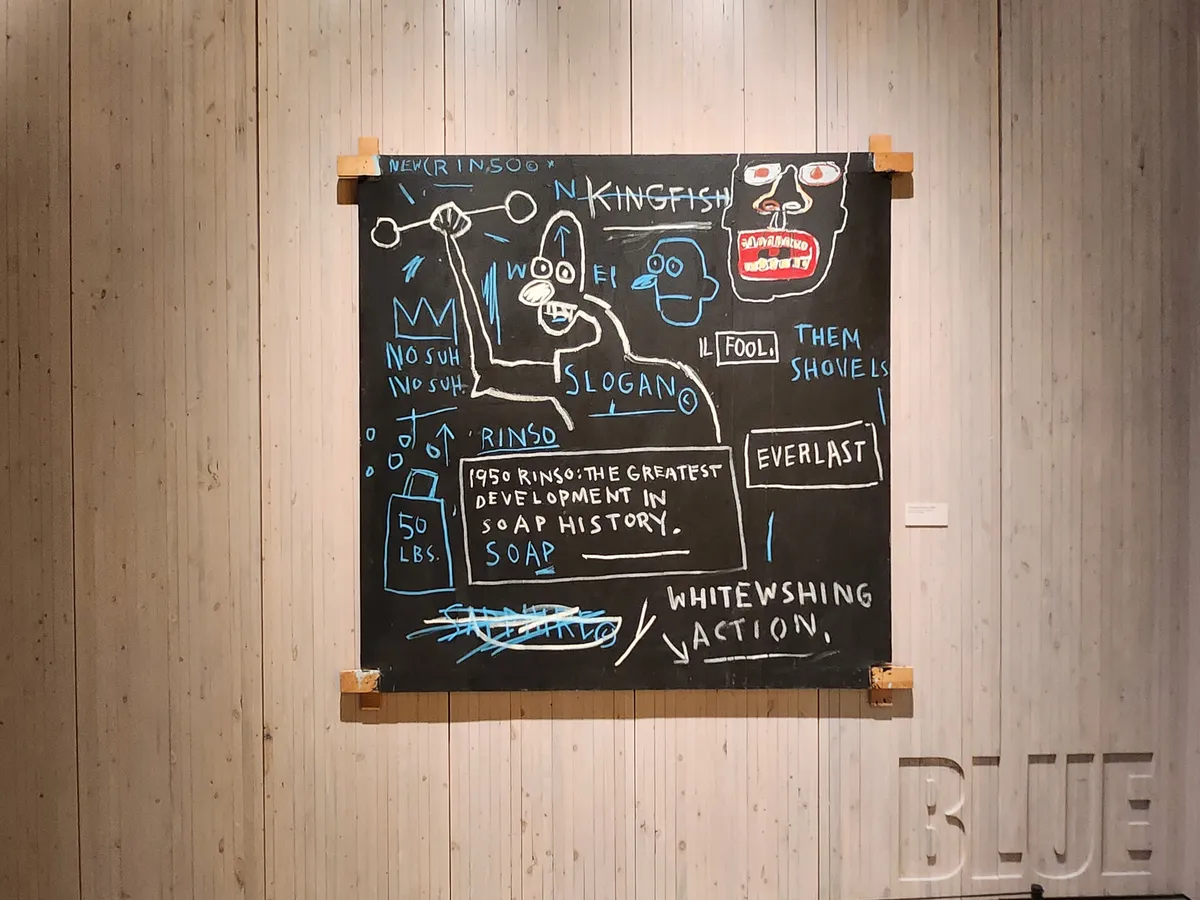 NEW(RINSO©
N KINGFISH
W EI
NO SUH
NO SUH.
SLOGAN©
IL FOOL.
THEM
SHOVELS
RINSO
EVERLAST
1950 RINSO: THE GREATEST
DEVELOPMENT IN
SOAP HISTORY.
SOAP
50
LBS.
SAPPHIRE©
WHITEWSHING
ACTION.
BLUE